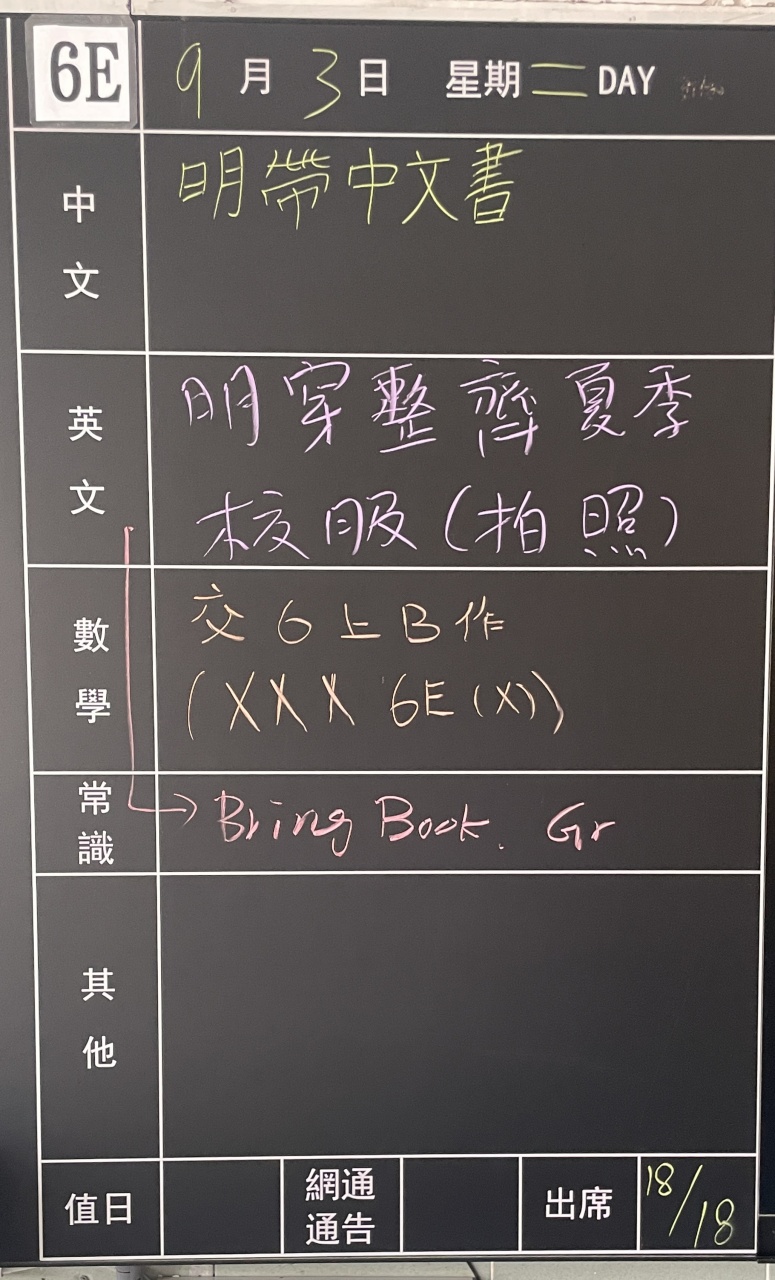 6E 9月3日 星期二 DAY
中文
明帶中文書
英文
明穿整齊夏季
校服(拍照)
數學
交6上B作
(XXX 6E(X))
常識
Bring Book. Gr
其他
值日
網通
通告
出席
18/18